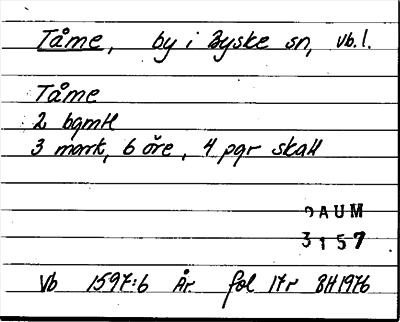 Tåme, by i Byske sn, vb.l.
Tåme
2 bgmtl
3 mark, 6 öre, 4 pgr skatt
DAUM
3157
Vb 1597:6 År fol 17r BH 1976